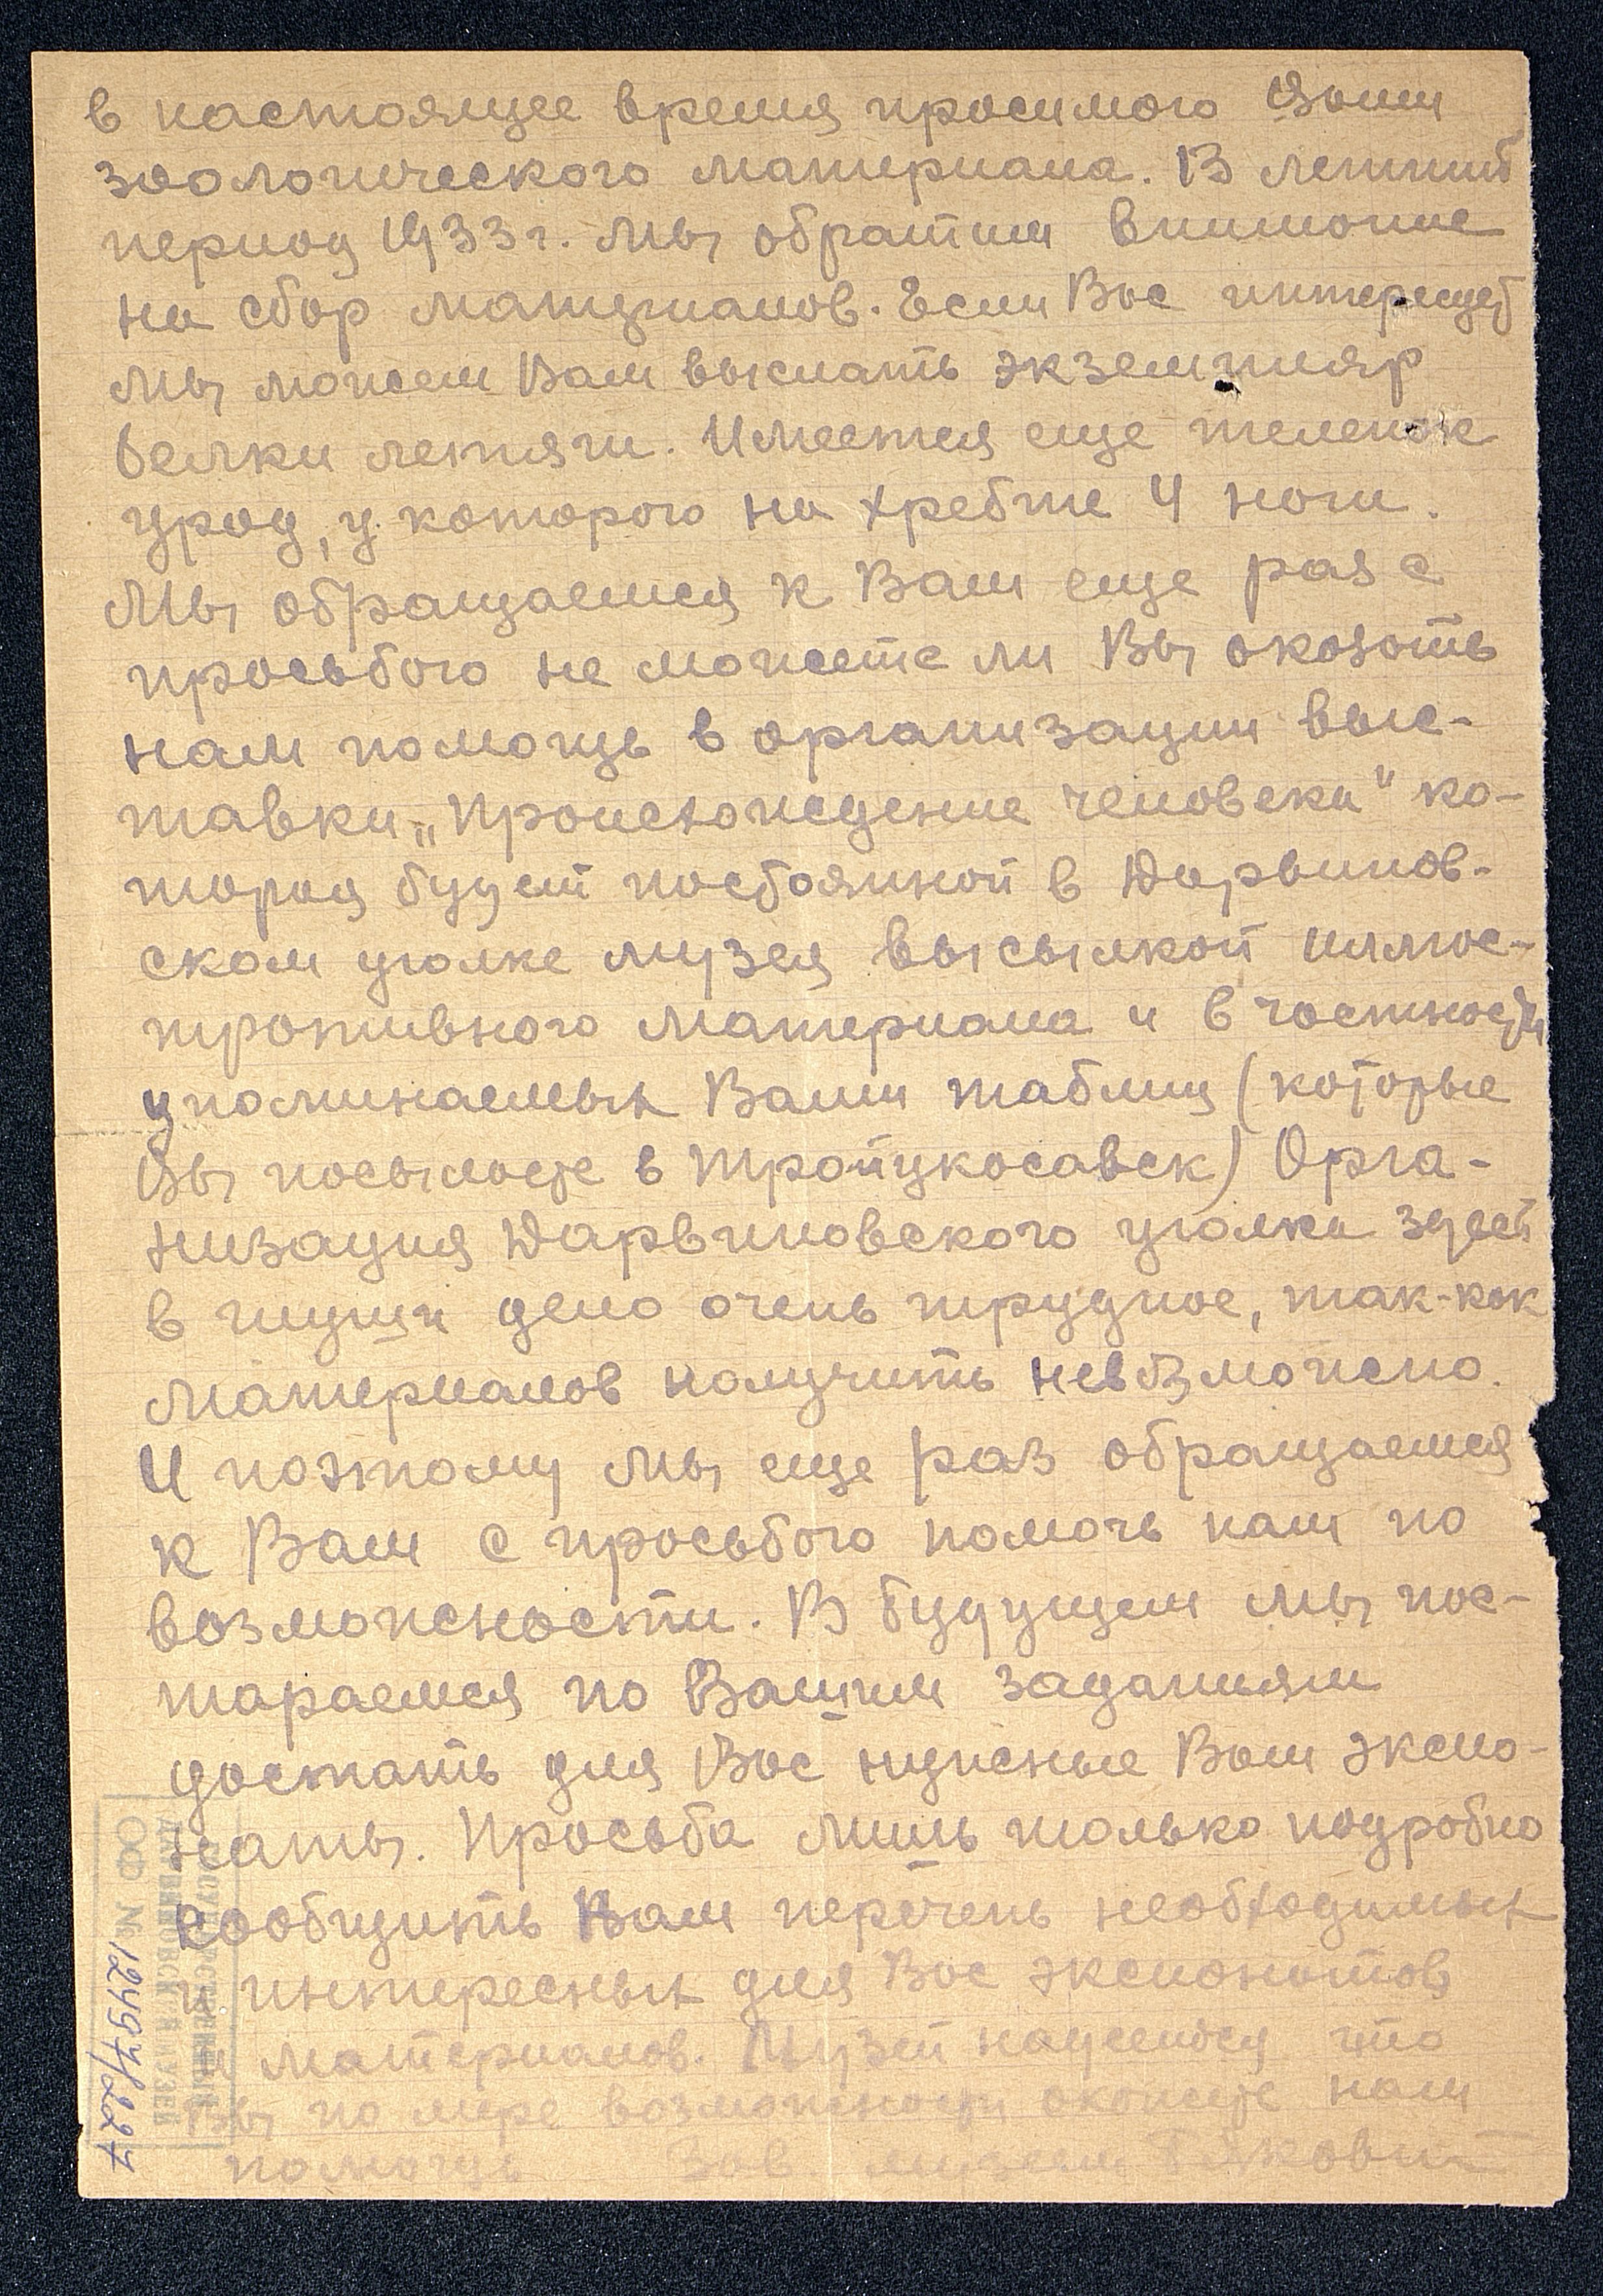 в настоящее время просимого Вами
зоологического материала. В летний
период 1933 г. мы обратим внимание
на сбор материалов. Если Вас интересует
мы можем Вам выслать экземпляр
белки летяги. Имеется еще теленок
урод, у которого на хребте 4 ноги.
Мы обращаемся к Вам еще раз с
просьбою не можете ли Вы оказать
нам помощь в организации выс-
тавки „Происхождение человека" ко-
торая будет постоянной в Дарвинов-
ском уголке музея высылкой иллюс-
тротивного материала и в частности
упоминаемых Вами таблиц (которые
Вы посылаете в Тройцкосавск) Орга-
низация Дарвиновского уголка здесь
в глуши дело очень трудное, так-как
материалов получить невозможно.
И поэтому мы еще раз обращаемся
к Вам с просьбою помочь нам по
возможности. В будущем мы пос-
тараемся по Вашим заданиям
достать для Вас нужные Вам экспо-
наты. Просьба лишь только подробно
сообщить Нам перечень необходимых
и интересных для Вас экспонатов
и материалов. Музей надеется что
Вы по мере возможности окажете нам
помощь Зав. музеем
ГОСУДАРСТВЕННЫЙ
ДАРВИНОВСКИЙ МУЗЕЙ
ОФ № 12497/227